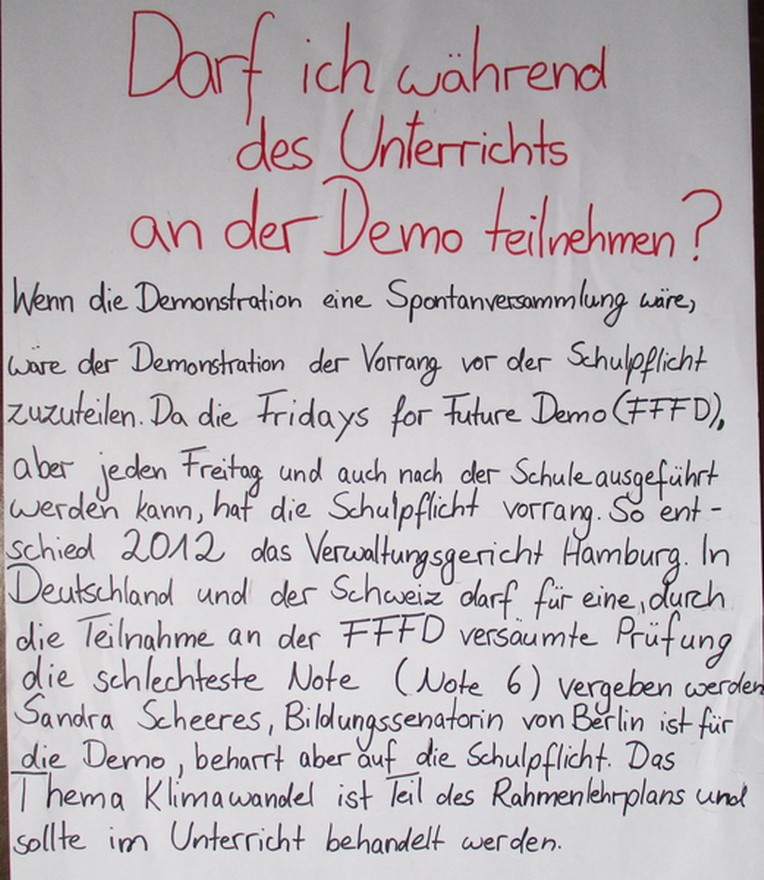 Darf ich während
des Unterrichts
an der Demo teilnehmen?
Wenn die Demonstration eine Spontanversammlung wäre,
wäre der Demonstration der Vorrang vor der Schulpflicht
zuzuteilen. Da die Fridays for Future Demo (FFFD),
aber jeden Freitag und auch nach der Schule ausgeführt
werden kann, hat die Schulpflicht vorrang. So ent-
schied 2012 das Verwaltungsgericht Hamburg. In
Deutschland und der Schweiz darf für eine, durch
die Teilnahme an der FFFD versäumte Prüfung
die schlechteste Note (Note 6) vergeben werden
Sandra Scheeres, Bildungssenatorin von Berlin ist für
die Demo, beharrt aber auf die Schulpflicht. Das
Thema Klimawandel ist Teil des Rahmenlehrplans und
sollte im Unterricht behandelt werden.